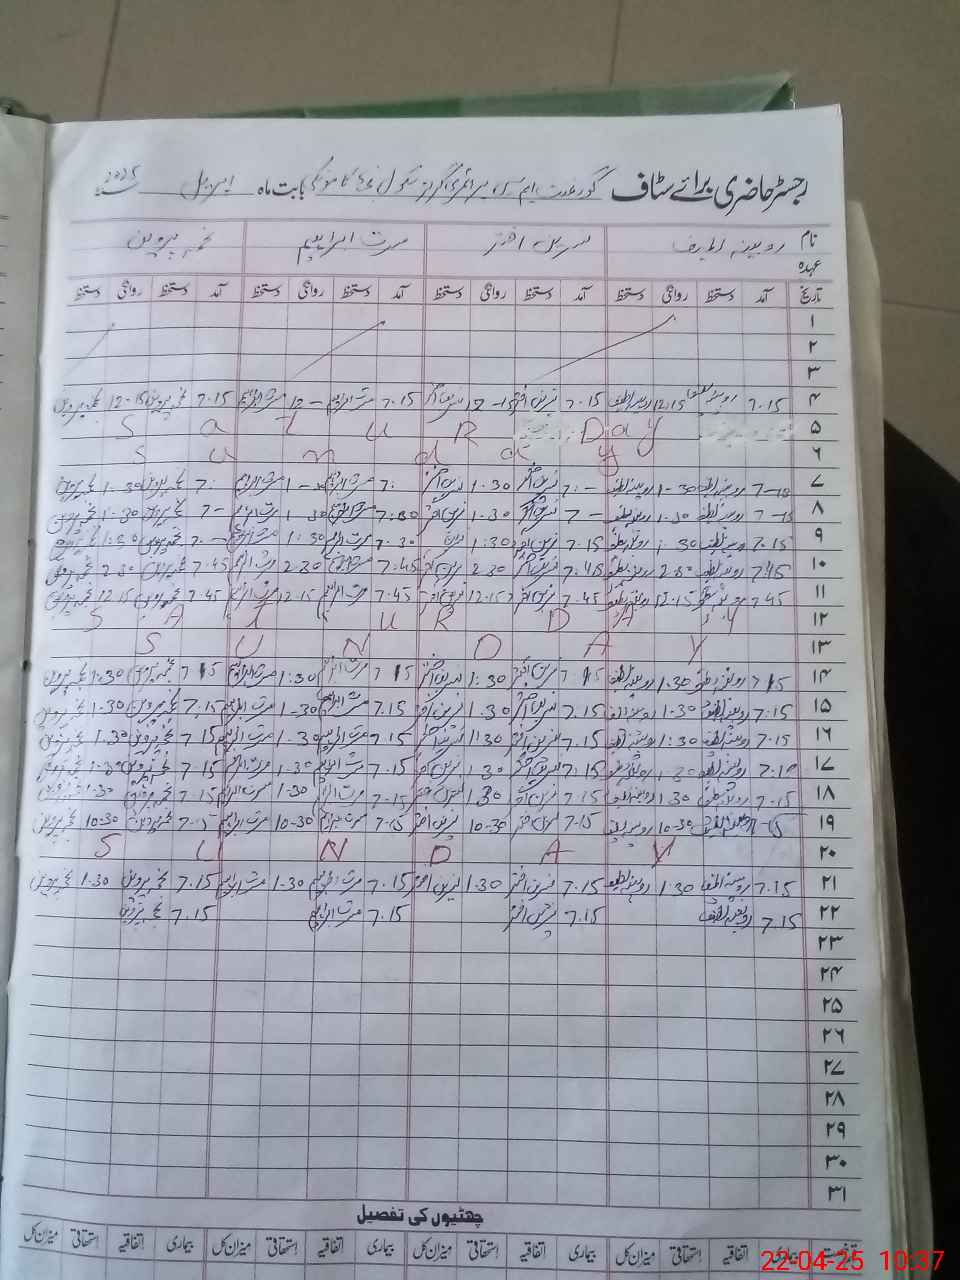 رجسٹر حاضری برائے سٹاف گورنمنٹ ایم سی پرائمری گرلز سکول کامونکی بابت ماہ اپریل 2025
نام روبینہ لطیف نسرین اختر مسرت ابراہیم نجمہ پروین
عہدہ
تاریخ آمد دستخط روانگی دستخط آمد دستخط روانگی دستخط آمد دستخط روانگی دستخط آمد دستخط روانگی دستخط
۱
۲
۳
۴ 7.15 روبینہ لطیف 12.15 روبینہ لطیف 7.15 نسرین اختر 12-15 نسرین اختر 7.15 مسرت ابراہیم 12- مسرت ابراہیم 7.15 نجمہ پروین 12-15 نجمہ پروین
۵ SatuRDay
۶ Sunday
۷ روبینہ لطیف 1.30 روبینہ لطیف 7:- نسرین اختر 1.30 نسرین اختر 7: مسرت ابراہیم مسرت ابراہیم 7: نجمہ پروین 1.30 نجمہ پروین
۸ روبینہ لطیف 1.30 روبینہ لطیف 7- نسرین اختر 1.30 نسرین اختر مسرت ابراہیم 1.30 مسرت ابراہیم 7- نجمہ پروین 1.30 نجمہ پروین
۹ 7.15 روبینہ لطیف 1:30 روبینہ لطیف 7.15 نسرین اختر 1:30 نسرین 7.30 مسرت ابراہیم 1:30 مسرت ابراہیم نجمہ پروین 1:30 نجمہ پروین
۱۰ 7.45 روبینہ لطیف 2.30 روبینہ لطیف 7.45 نسرین اختر 2.30 نسرین اختر 7.45 مسرت ابراہیم 2.30 مسرت ابراہیم 7.45 نجمہ پروین 2.30 نجمہ پروین
۱۱ 7.45 روبینہ لطیف 12.15 روبینہ لطیف 7.45 نسرین اختر 12.15 نسرین اختر 7.45 مسرت ابراہیم 12.15 مسرت ابراہیم 7.45 نجمہ پروین 12.15 نجمہ پروین
۱۲ SATURDAY
۱۳ SUNDAY
۱۴ 7.15 روبینہ لطیف 1.30 روبینہ لطیف 7.15 نسرین اختر 1:30 نسرین اختر 7.15 مسرت ابراہیم 1:30 مسرت ابراہیم 7.15 نجمہ پروین 1:30 نجمہ پروین
۱۵ 7.15 روبینہ لطیف 1.30 روبینہ لطیف 7.15 نسرین اختر 1.30 نسرین اختر 7.15 مسرت ابراہیم 1.30 مسرت ابراہیم 7.15 نجمہ پروین 1.30 نجمہ پروین
۱۶ 7.15 روبینہ لطیف 1:30 روبینہ لطیف 7.15 نسرین اختر 1:30 نسرین اختر 7.15 مسرت ابراہیم 1.30 مسرت ابراہیم 7.15 نجمہ پروین 1.30 نجمہ پروین
۱۷ 7.15 روبینہ لطیف 1.30 روبینہ لطیف 7:15 نسرین اختر 1.30 نسرین اختر 7.15 مسرت ابراہیم 1.30 مسرت ابراہیم 7.15 نجمہ پروین 1.30 نجمہ پروین
۱۸ 7.15 روبینہ لطیف 1.30 روبینہ لطیف 7.15 نسرین اختر 1.30 نسرین اختر 7.15 مسرت ابراہیم 1.30 مسرت ابراہیم 7.15 نجمہ پروین 1.30 نجمہ پروین
۱۹ 7-15 روبینہ لطیف 10-30 روبینہ لطیف 7.15 نسرین اختر 10-30 نسرین اختر 7.15 مسرت ابراہیم 10-30 مسرت ابراہیم 7.15 نجمہ پروین 10-30 نجمہ پروین
۲۰ SUNDAY
۲۱ 7.15 روبینہ لطیف 1.30 روبینہ لطیف 7.15 نسرین اختر 1.30 نسرین اختر 7.15 مسرت ابراہیم 1.30 مسرت ابراہیم 7.15 نجمہ پروین 1.30 نجمہ پروین
۲۲ 7.15 روبینہ لطیف 7.15 نسرین اختر 7.15 مسرت ابراہیم 7.15 نجمہ پروین
۲۳
۲۴
۲۵
۲۶
۲۷
۲۸
۲۹
۳۰
۳۱
چھٹیوں کی تفصیل
بیماری اتفاقیہ استحقاقی میزان کل بیماری اتفاقیہ استحقاقی میزان کل بیماری اتفاقیہ استحقاقی میزان کل بیماری اتفاقیہ استحقاقی میزان کل
22-04-25 10:37